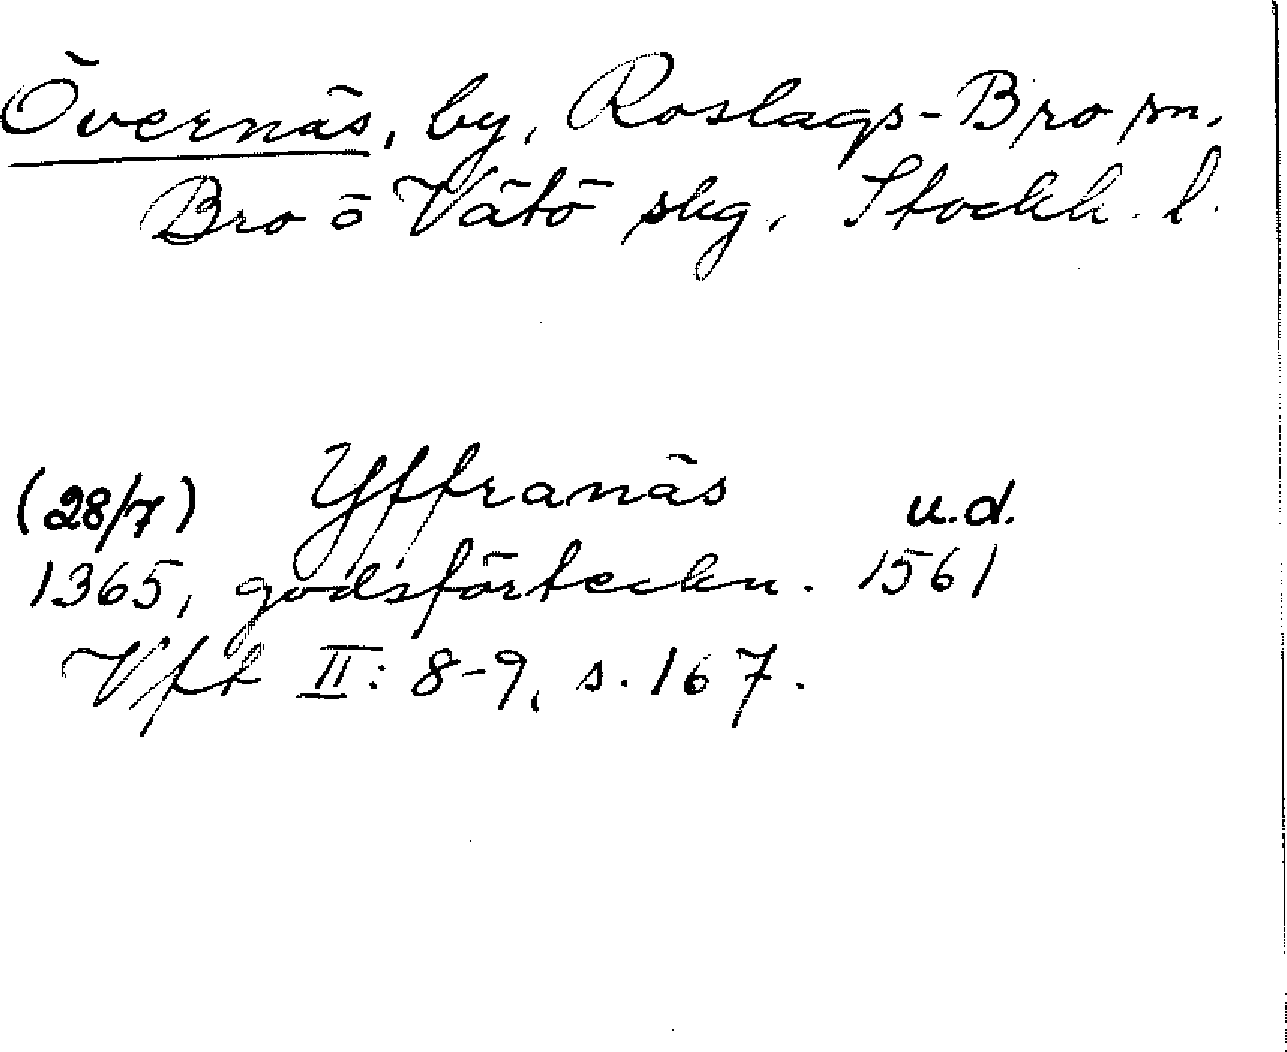 Övernäs, by, Roslags-Bro sn,
Bro o Vätö skg, Stockh. l.
(28/7) Yffranäs u.d.
1365, godsförteckn. 1561
Vft II: 8-9, s. 167.